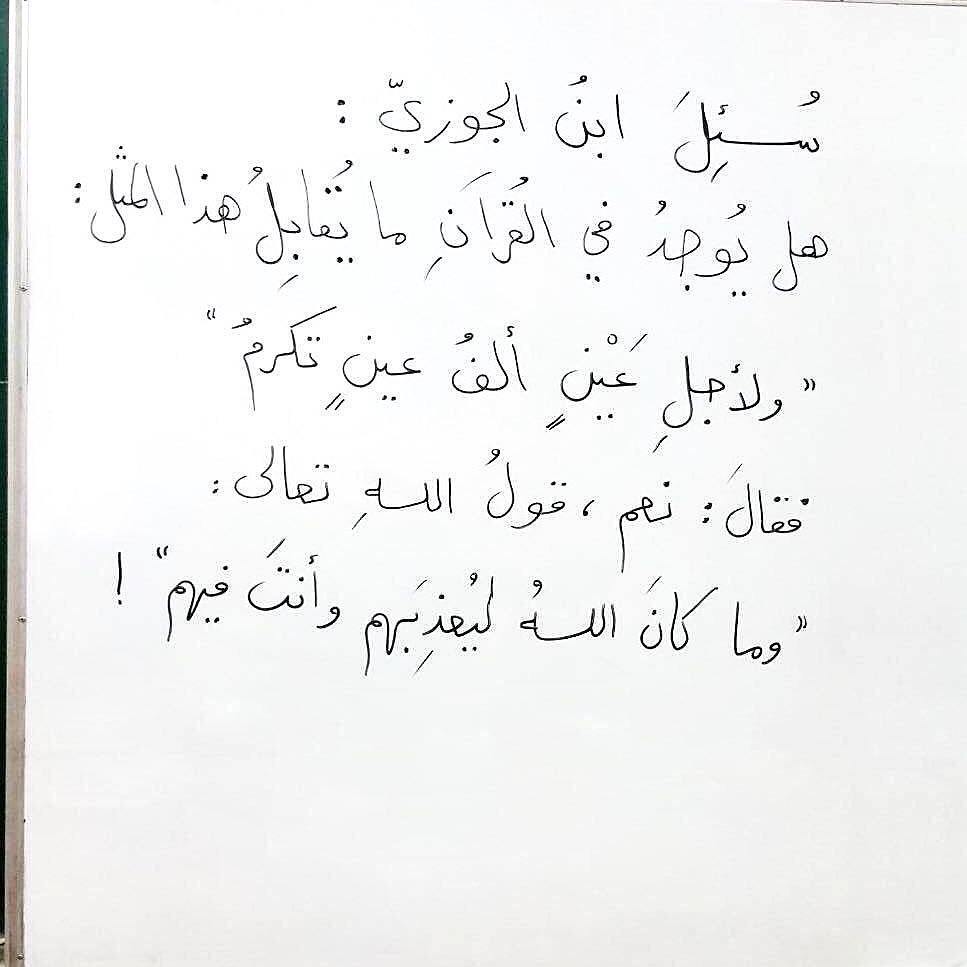 سُئِلَ ابنُ الجوزيّ :
هل يُوجدُ في القُرآنِ ما يُقابِلُ هذا المثل :
"ولأجلِ عَيْنٍ ألفُ عينٍ تكرمُ"
فقالَ : نعم ، قولُ اللهِ تعالى :
"وما كانَ اللهُ ليُعذِبَهم وأنتَ فيهم" !